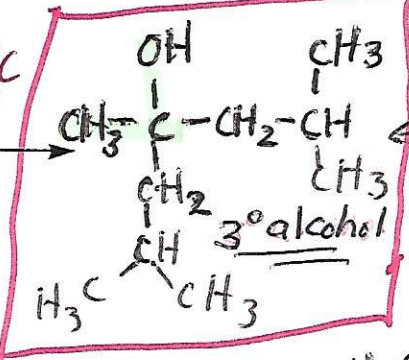 C
OH CH3
CH3-C-CH2-CH
CH2 CH3
CH 3° alcohol
H3C CH3